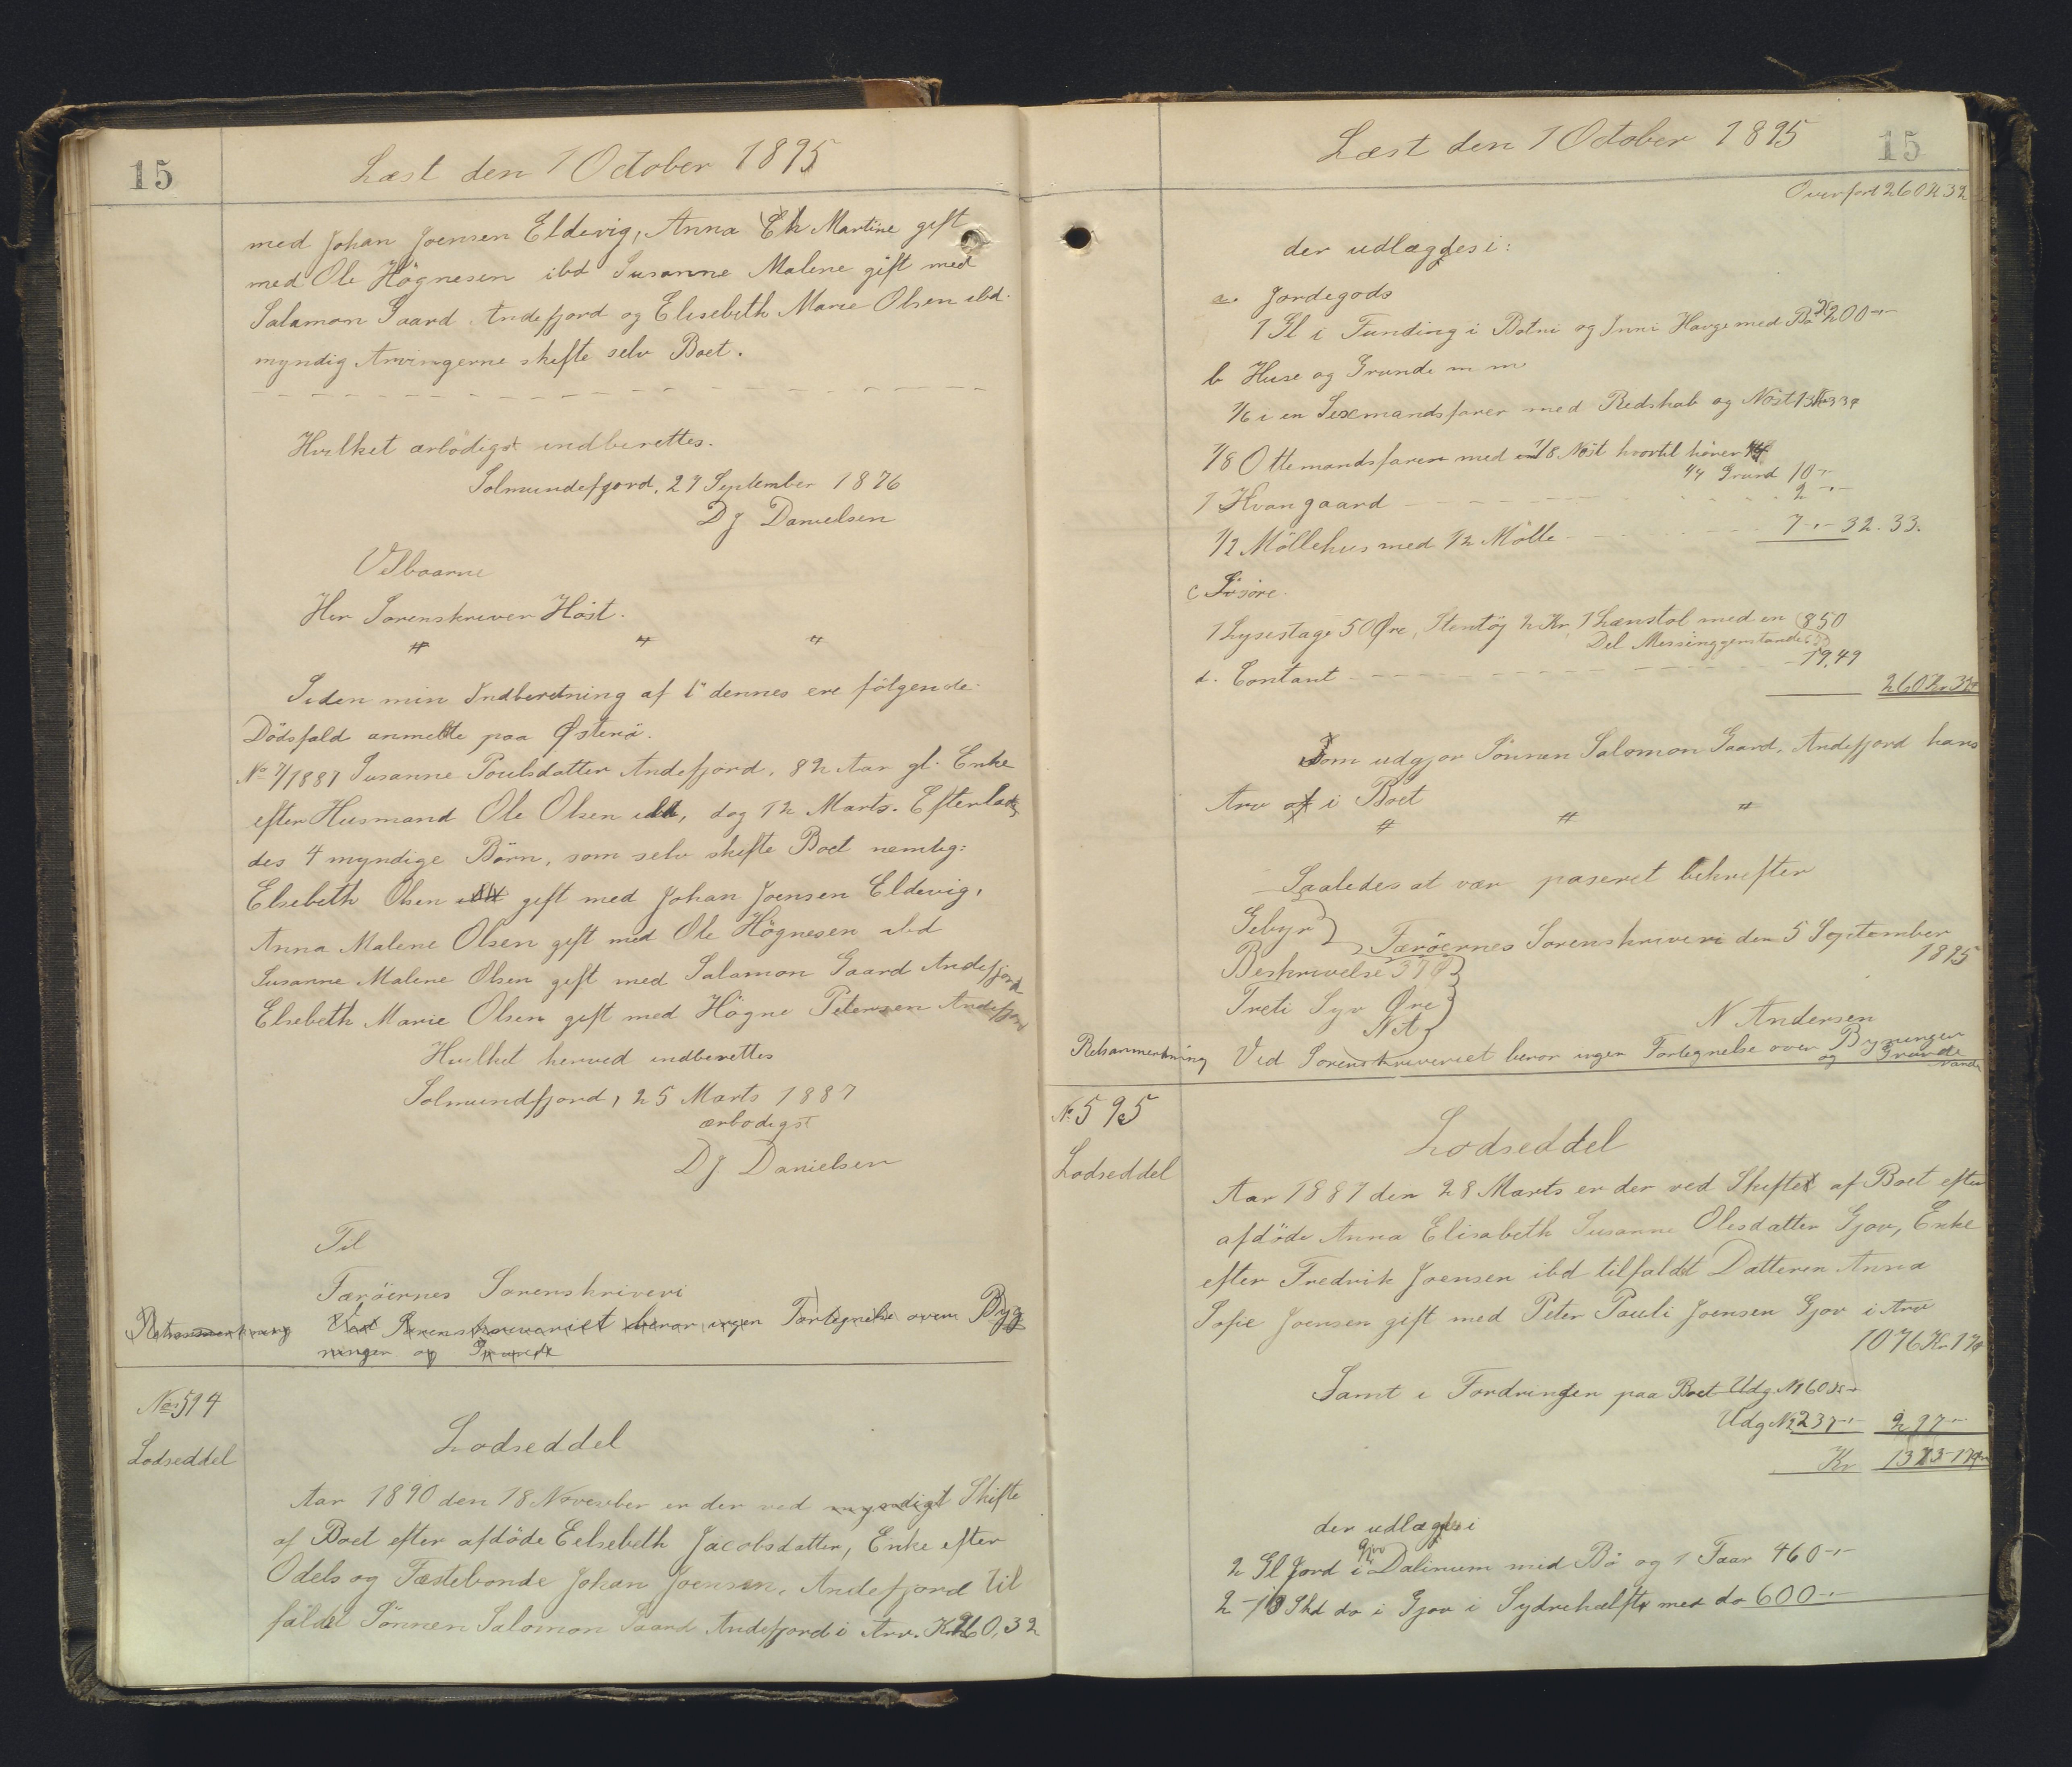 15
Læst den 1 October 1895
med Johan Joensen Eldevig, Anna Martine gift
med Ole Högnesen ibd Susanne Malene gift med
Salamon Gaard Andefjord og Elisebeth Marie Olsen ibd.
myndig Arvingerne skifte selv Boet.
Hvilket ærbödigst indberettes.
Solmundefjord, 27 September 1876
DJ Danielsen
Velbaarne
Herr Sorenskriver Höst.
Siden min Indberetning af 1 dennes ere fölgende
Dödsfald anmeldte paa Österö.
No 7/1887 Susanne Poulsdatter Andefjord, 82 Aar gl. Enke
efter Husmand Ole Olsen ibd, dog 12 Marts. Efterlod
des 4 myndige Börn, som selv skifte Boet nemlig:
Elsebeth Olsen gift med Johan Joensen Eldevig,
Anna Malene Olsen gift med Ole Högnesen ibd
Susanne Malene Olsen gift med Salamon Gaard Andefjord
Elsebeth Marie Olsen gift med Högne Petersen Andefjord
Hvilket herved indberettes
Solmundfjord, 25 Marts 1887
ærbödigst
DJ Danielsen
Til
Færöernes Sorenskriveri
Retsanmerkning Ved Sorenskriveriet beror ingen Fortegnelse over Byg
ninger og Grunde
No 594
Lodseddel
Lodseddel
Aar 1890 den 18 November er der ved myndigt Skifte
af Boet efter afdöde Eelsebeth Jacobsdatter, Enke efter
Odels og Fæstebonde Johan Joensen, Andefjord til
faldet Sönnen Salomon Gaard Andefjord i Arv. Kr 260,32
Læst den 1 October 1895
15
Overfört 260 Kr 32
der udlægges i:
a. Jordegods
1 Gl i Funding i Botni og Inni Hauge med Bö Kr 200 -"-
b Huse og Grunde m m
1/6 i en Sexmandsfarer med Redskab og Nöst 13 Kr 33
1/8 Ottemandsfarer med 1/8 Nöst hvortil hörer
1/4 Grund 10 -"-
1 Hvangaard 2 -"-
1/2 Möllehus med 1/2 Mölle 7 -"- 32.33.
c Lösöre.
1 Lysestage 50 Öre, Stentöj 2 Kr, 1 Lænstol med en 850
Del Messinggenstande
d. Contant 19,49
260 Kr 32
Som udgjör Sönnen Salomon Gaard, Andefjord hans
Arv af i Boet
Saaledes at vær paseret bekrefter
Gebyr
Færöernes Sorenskriveri den 5 September
1895
Beskrivelse 37
Treti Syv Öre
Nit
N Andersen
Retsanmerkning Ved Sorenskriveriet beror ingen Fortegnelse over Bygninger
og Grunde
No 595
Lodseddel
Lodseddel
Aar 1887 den 28 Marts er der ved Skiftet af Boet efter
afdöde Anna Elisabeth Susanne Olesdatter Gjov, Enke
efter Fredrik Joensen ibd tilfaldt Datteren Anna
Sofie Joensen gift med Peter Pauli Joensen Gjov i Arv
1076 Kr 17
Samt i Fordringen paa Boet Udg. No 1 60 -"-
Udg No 2 237 -"- 297 -"-
Kr 1373 - 17
der udlægges i
2 Gl Jord i Gjov Dalinum med Bö og 1 Faar 460 -"-
2 - 13 Skd do i Gjov i Sydrehælfte med do 600 -"-